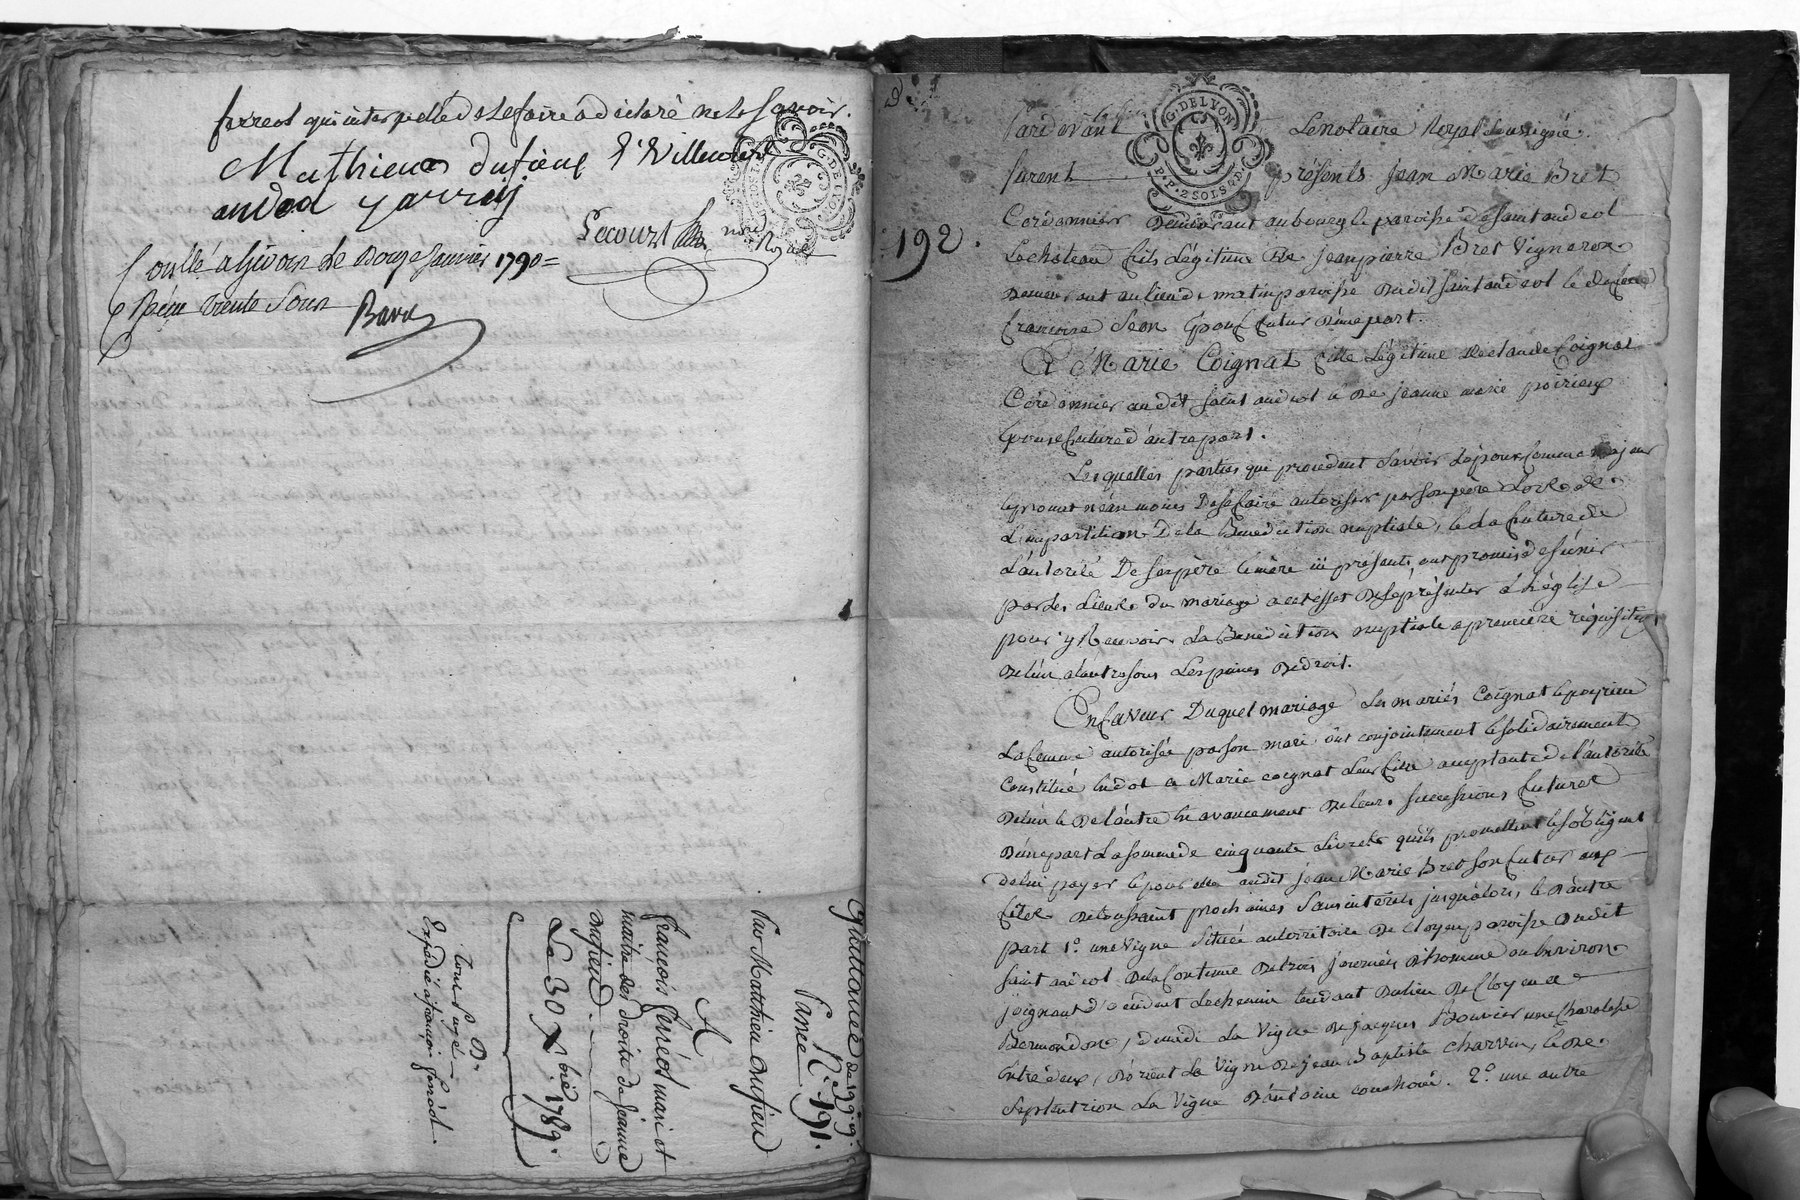 ferreol qui interpellé de le faire a déclaré ne le savoir.
Mathieu dufieux
G. DE LYON
Lecourt
nore Royal
Con[tro]llé a Givors le Douze Janvier 1790 =
Reçu trente Sous
Quittance de 199# 9s
Passée
N.° 191.
Par Matthieu Dufieu
A
françois ferréol mari et
maitre des droits de jeanne
dufieu
Le 30 Xbre. 1789.
Expédiée a françois ferréol.
192.
Pardevant Le notaire Royal soussigné
G. DE LYON
P.P. 2 SOLS 4 D.
furent présents Jean Marie Bret
Cordonnier Demeurant au bourg & paroisse de saint andeol
Lechateau fils Légitime De Jean pierre Bret Vigneron
Demeurant au lieu de paroisse Dudit saint andeol & de
françoise Jean Epoux futur D'une part.
Et Marie Coignat fille Légitime de claude Coignat
Cordonnier audit saint andeol & De jeanne marie poirieux
Epouse future d'autre part.
Lesquelles parties qui procedent savoir L'époux comme majeur
& promet néanmoins De se faire autoriser par son père Lors de
L'impartition De la Benediction nuptiale, & La future de
L'autorité De ses père & mère ici présents, ont promis de s'unir
par les Liens du mariage a cet effet De se présenter à L'église
pour y Recevoir La Benediction nuptiale a première réquisition
De l'un a l'autre sous Les peines De droit.
En faveur Duquel mariage Les mariés Coignat & poyrieu
La femme autorisée par son mari ont conjointement & solidairement
Constitué En dot a Marie coignat Leur fille acceptante de l'autorité
De l'un & De l'autre En avancement De leurs successions futures
D'une part La somme de cinquante Livres qu'ils promettent & s'obligent
de lui payer & pour elle audit jean Marie Bret son futur aux
fêtes De toussaint prochaines sans intérêts jusqu'alors, & D'autre
part 1.° une Vigne Située au territoire De cloyen paroisse Dudit
saint andeol De la Contenue De trois journées D'homme ou Environ
joignant d'occident Le chemin tendant Du lieu De Cloyen a
Bermondon, de midi La Vigne De jacques Bouvier une Charolesse
Entre deux, D'orient La Vigne De jean Baptiste Charvin, & De
Septentrion La Vigne D'antoine 2.° une autre